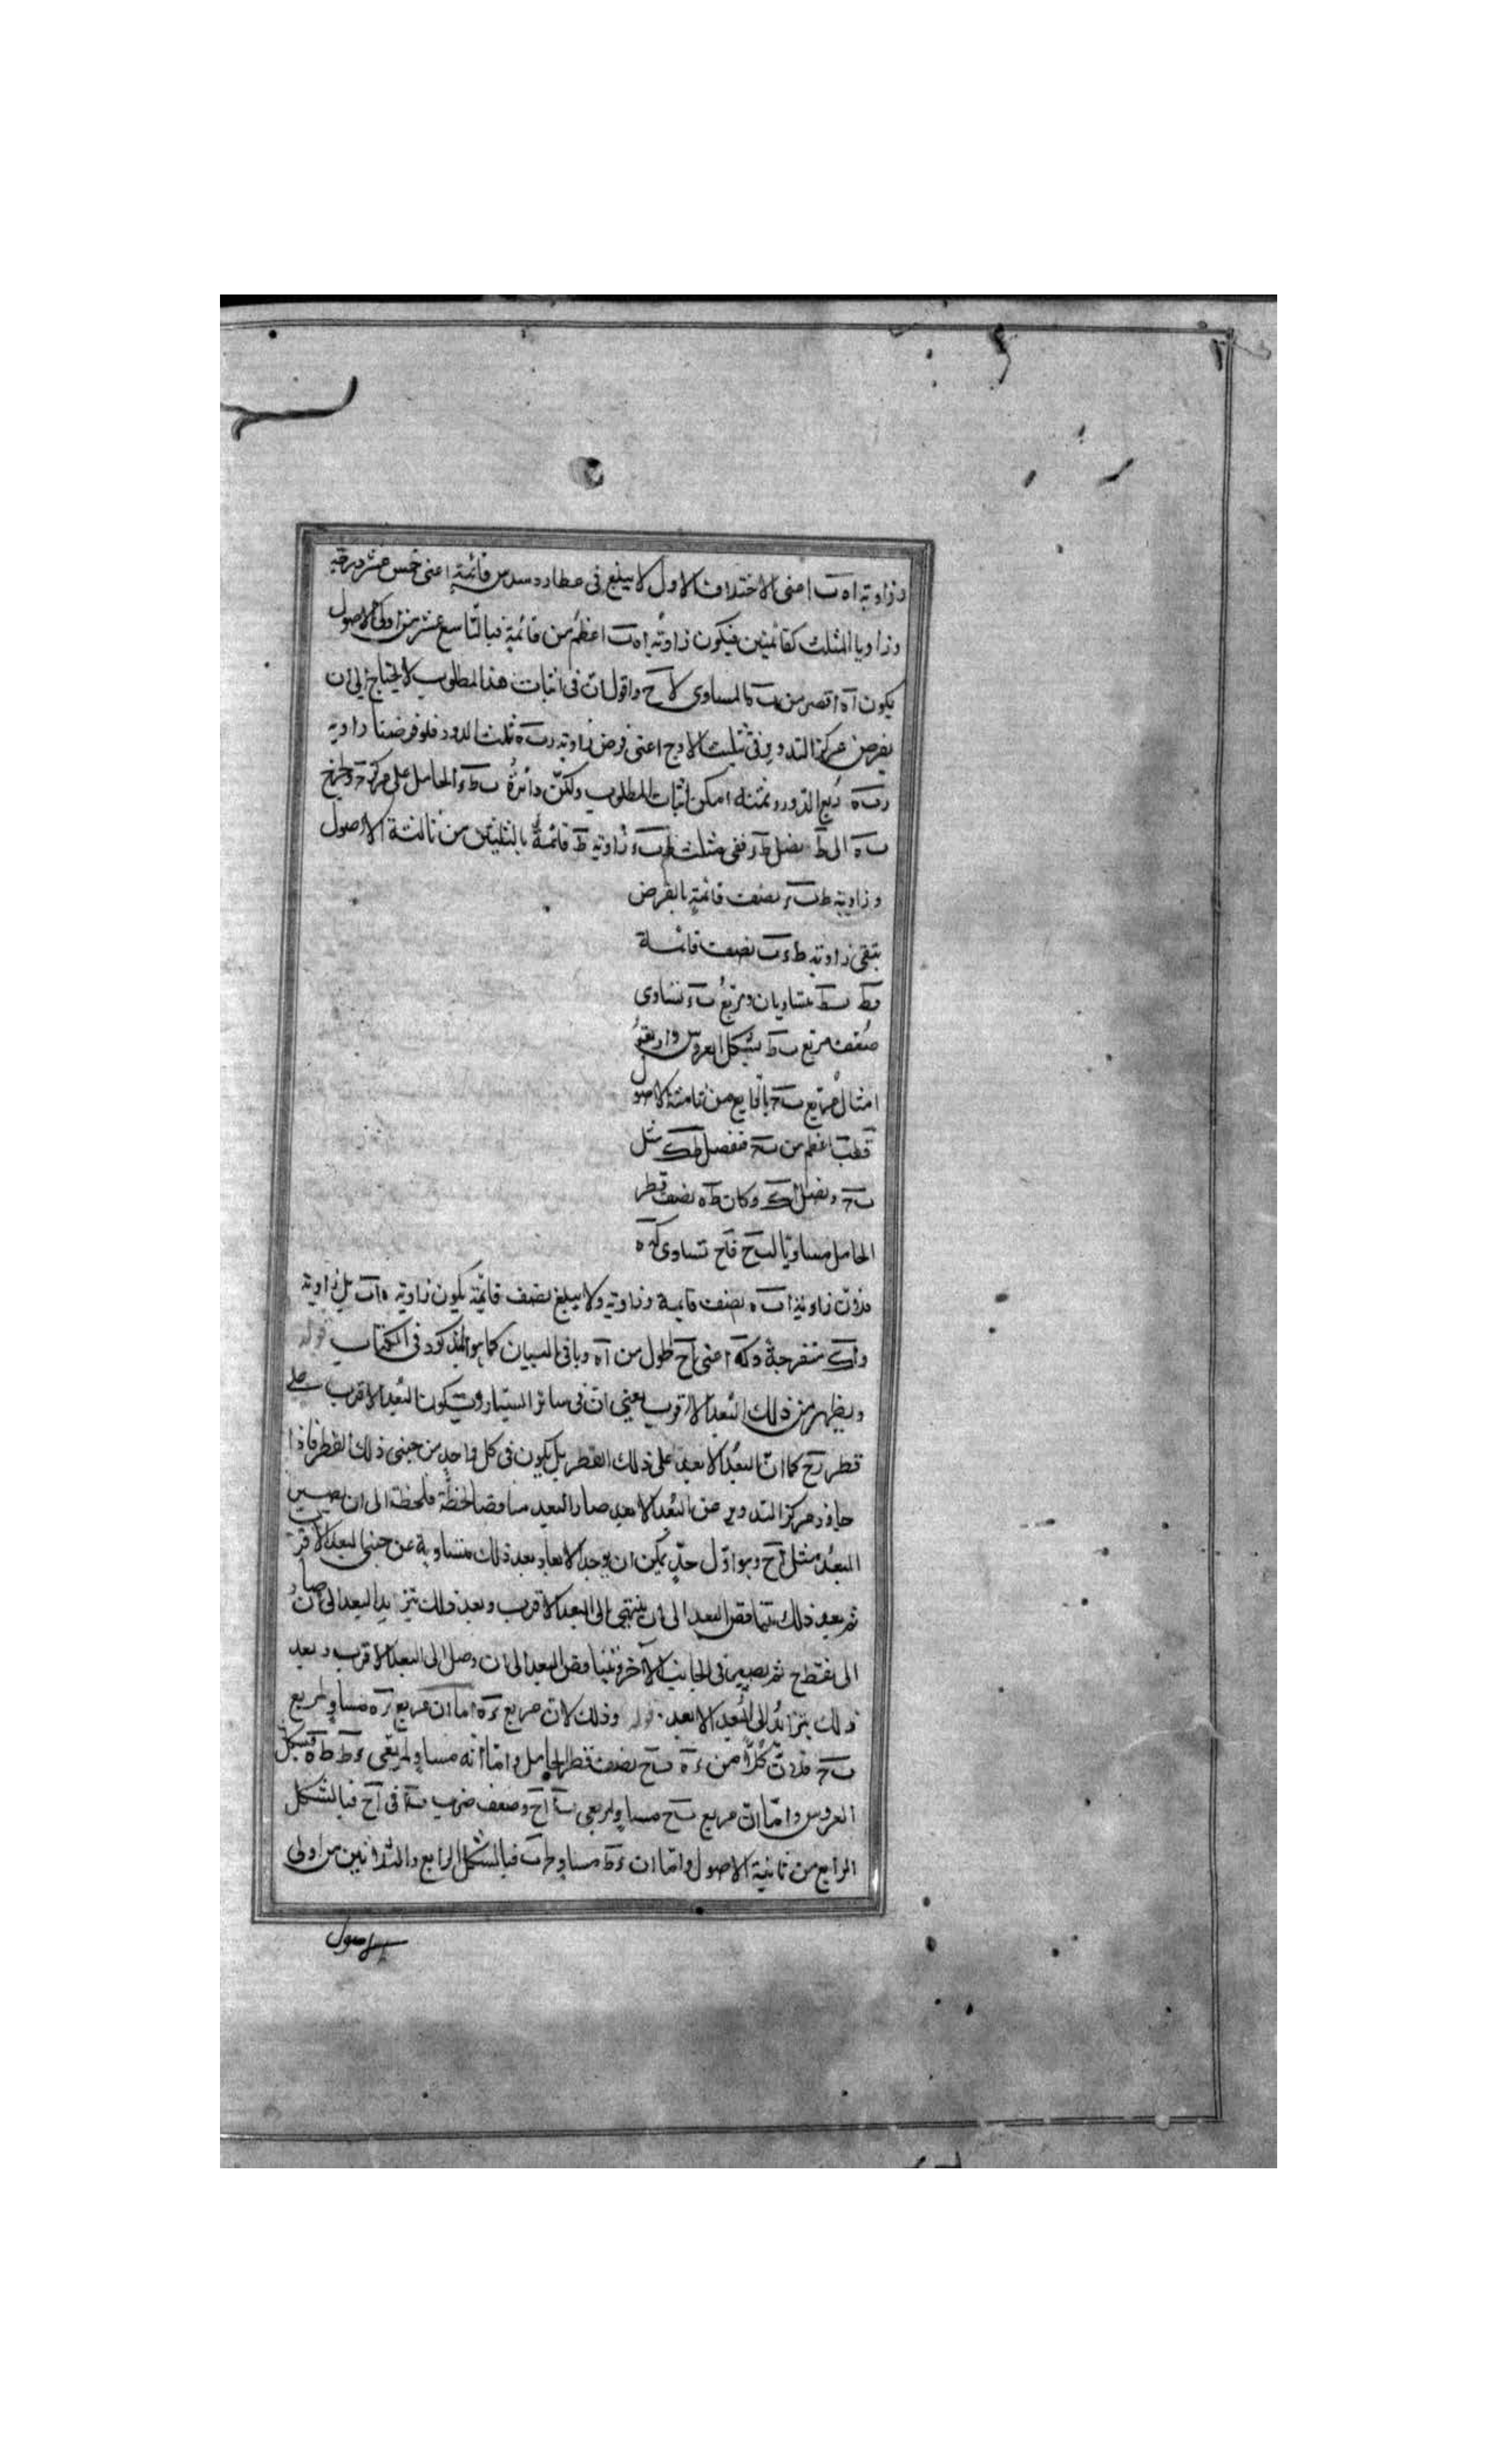 وزاوية اه ب اعنى الاختلاف الاول لا يبلغ فى عطارد سدس قائمة اعنى خمس عشر درجة
وزوايا المثلث كقائمتين فيكون زاوية اه ب اعظم من قائمة فبالتاسع عشر من اولى الاصول
يكون آه اقصر من المساوى لاح واقول ان فى اثبات هذا المطلوب لا يحتاج الى ان
يفرض مركز التدوير فى تثليث الاوج اعنى فرض زاوية ر ب ه ثلث الدور فلو فرضنا زاوية
ر ب ه ربع الدور وثمنه امكن اثبات المطلوب ولكن دائرة ب ط ء الحامل على مركز ح
ب ه الى ط نصل ففى مثلث ط ب ء زاوية ط قائمة بالثلثين من ثالثة الاصول
وزاوية ط ب ء نصف قائمة بالفرض
تبقى زاوية ط ء ب نصف قائمة
متساويان ومربع ب ء تساوى
ضعف مربع ب ط بشكل العروس واربعة
امثال مربع ب ح بالرابع من ثامنة الاصول
اعظم من ب ح فنفصل ط ك مثل
ب ح ونصل اك وكان ط ه نصف قطر
الحامل مساويا لب ح فاح تساوى ك ه
زاوية اب ه نصف قايمة وزاوية ولا يبلغ نصف قائمة يكون زاوية ه اب بل زاوية
ه اك منفرجة وك ه اعنى اح اطول من آه وباقى البيان كما هو المذكور فى الكتاب قوله
ويظهر من ذلك البعد الاقرب يعنى ان فى سائر السيارة يكون البعد الاقرب على
قطر رح كما ان البعد الابعد على ذلك القطر بل يكون فى كل واحد من جنبى ذلك القطر فاذا
جاوز مركز التدوير عن البعد الابعد صار البعد متناقصا لحظة فلحظة الى ان يصير
البعد مثل اح وهو اول حد يمكن ان يوجد الابعاد بعد ذلك متساوية عن جنبى البعد الاقرب
ثم بعد ذلك يتناقص البعد الى ان ينتهى الى البعد الاقرب وبعد ذلك يتزايد البعد الى ان صار
الى نقطة ح ثم يصير فى الجانب الآخر ويتناقص البعد الى ان وصل الى البعد الاقرب وبعد
ذلك يتزايد الى البعد الابعد قوله وذلك لان مربع ء ه اما ان مربع ء ه مساو لمربع
ب ح فلان كلا من ء ه ب ح نصف قطر الحامل واما انه مساو لمربعى ء ط ط ه فبشكل
العروس واما ان مربع ب ح مساو لمربعى ب ا اح وضعف ضرب ب ا فى اح فبالشكل
الرابع من ثانية الاصول واما ان ء ط مساو فبالشكل الرابع والثلاثين من اولى
الاصول